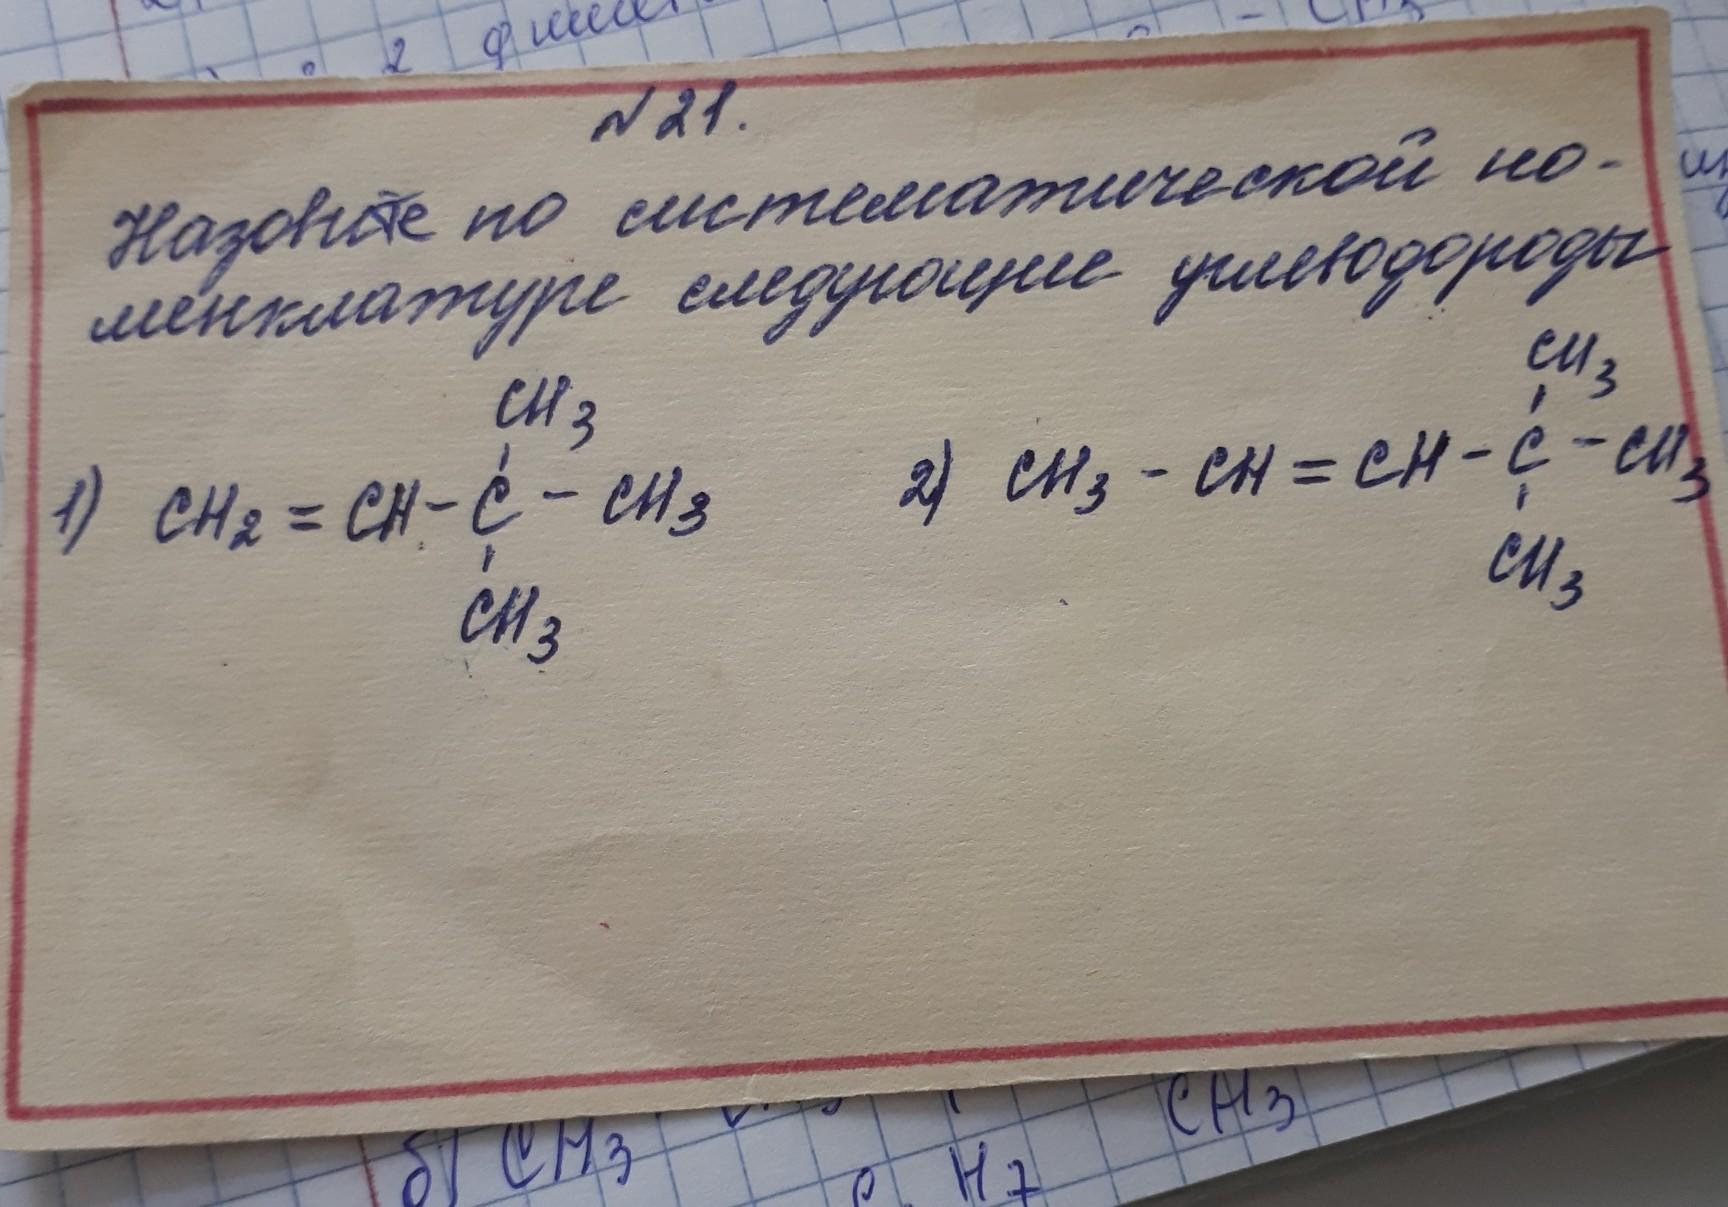 2 диме
- CH3
№ 21.
Назовите по систематической но-
менклатуре следующие углеводороды
CH3
CH3
1) CH2 = CH - C - CH3
2) CH3 - CH = CH - C - CH3
CH3
CH3
б) CH3
CH3
H7